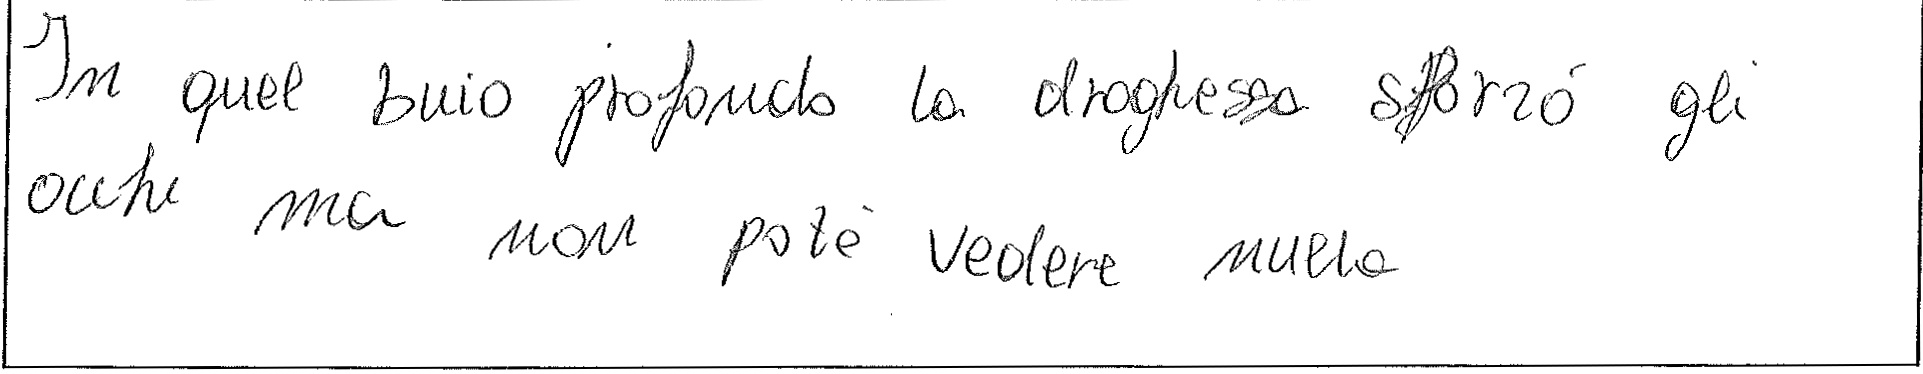 In quel buio profondo la draghessa sforzó gli
occhi ma non potè vedere nulla